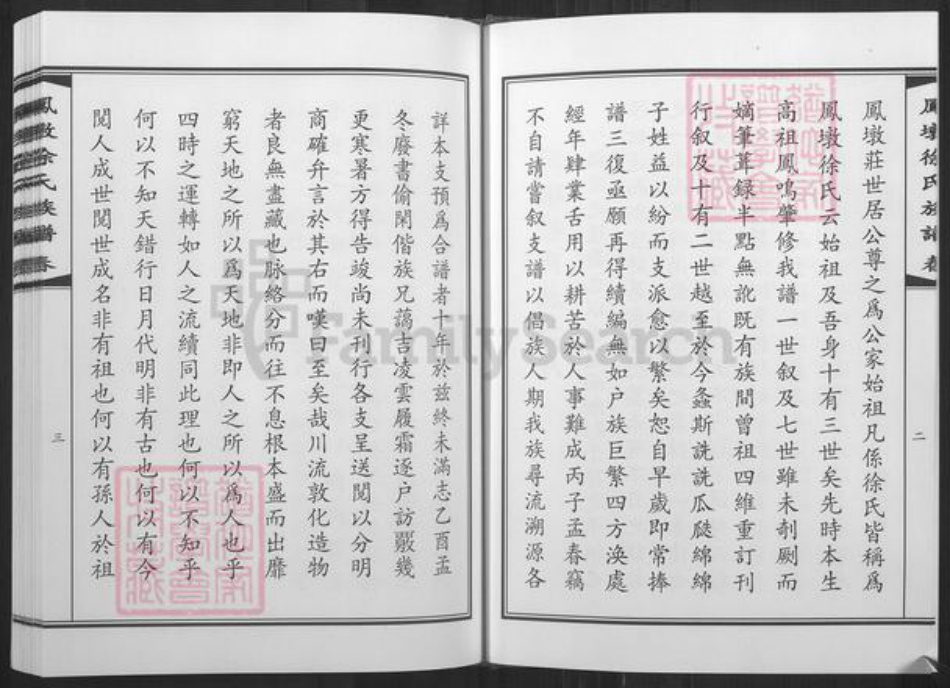 鳳墩徐氏族譜 卷
二
鳳墩莊世居公尊之爲公家始祖凡係徐氏皆稱爲
鳳墩徐氏云始祖及吾身十有三世矣先時本生
高祖鳳鳴肇修我譜一世叙及七世雖未剞劂而
嫡筆葺録半點無訛既有族間曾祖四維重訂刊
行叙及十有二世越至於今螽斯詵詵瓜瓞綿綿
子姓益以紛而支派愈以繁矣恕自早歲即常捧
譜三復亟願再得續編無如户族巨繁四方渙處
經年肆業舌用以耕苦於人事難成丙子孟春竊
不自請嘗叙支譜以倡族人期我族尋流溯源各
詳本支預爲合譜者十年於兹終未滿志乙酉孟
冬廢書偷閑偕族兄藹吉凌雲履霜逐户訪覈幾
更寒暑方得告竣尚未刊行各支呈送閱以分明
商確弁言於其右而嘆曰至矣哉川流敦化造物
者良無盡藏也脉絡分而往不息根本盛而出靡
窮天地之所以爲天地非即人之所以爲人也乎
四時之運轉如人之流續同此理也何以不知乎
何以不知天錯行日月代明非有古也何以有今
閲人成世閲世成名非有祖也何以有孫人於祖
鳳墩徐氏族譜 卷
三
FamilySearch